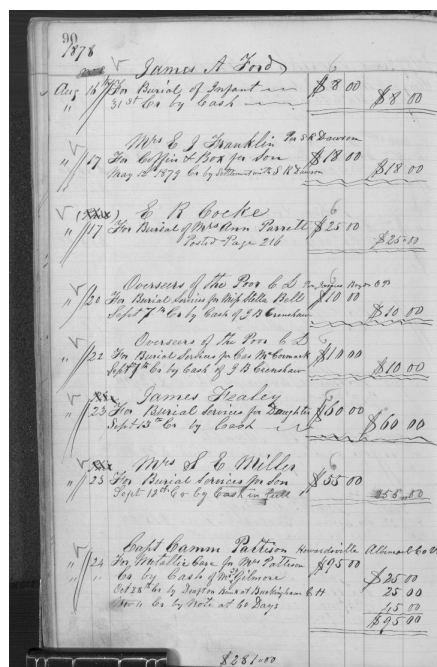 90
1878
James A Ford
Aug 16th For Burial of Infant $8 00
" 31st Cr by Cash $8 00
Mrs E J Franklin Per S R Dawson
" 17 For Coffin & Box for Son $18 00
May 12th 1879 Cr by Settlement with S R Dawson $18 00
E R Cocke
" 17 For Burial of Mrs Ann Parrett $25 00
Posted Page 216 $25.00
Overseers of the Poor C L Per
" 20 For Burial Services for Miss Stella Bell $10 00
Sept 7th Cr by Cash of J B Crenshaw $10 00
Overseers of the Poor C L
" 22 For Burial Services for Cas McCormack $10 00
Sept 7th Cr by Cash of J B Crenshaw $10 00
James Fealey
" 23 For Burial Services for Daughter $60 00
Sept 13th Cr by Cash $60 00
Mrs S E Miller
" 23 For Burial Services for Son $55 00
Sept 18th Cr by Cash in full $55.00
Capt Camm Pattison Howardsville Albemarl Co V
" 24 For Metallic Case for Mrs Pattison $95 00
" " Cr by Cash of Mr Gilmore $25 00
Oct 28th Cr by Draft on Bank at Buckingham C H 25 00
" Cr by Note at 60 Days 45 00
$95 00
$281.00